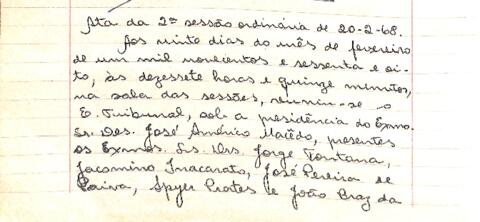 Ata da 2ª sessão ordinária de 20-2-68.
Aos vinte dias do mês de fevereiro
de um mil novecentos e sessenta e oi-
to, às dezessete horas e quinze minutos,
na sala das sessões, reuniu-se o
E. Tribunal, sob a presidência do Exmo.
Sr. Des. José Américo Macêdo, presentes
os Exmos. Srs. Drs. Jorge Fontana,
Jacomino Inacarato, José Pereira de
Paiva, Spyer Prates e João Braz da